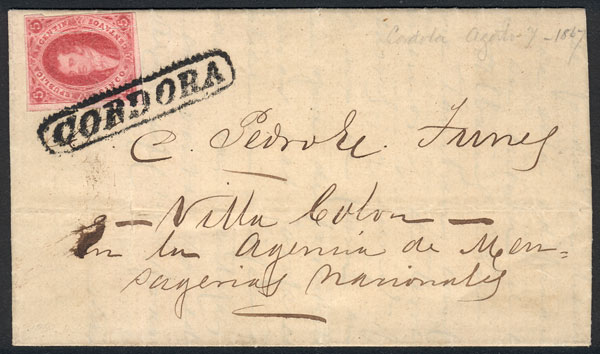 Cordoba Agosto 7 - 1867
CORDOBA
C. Pedro Funes
- Villa Colon -
en la Agencia de Men-
sagerias Nacionales